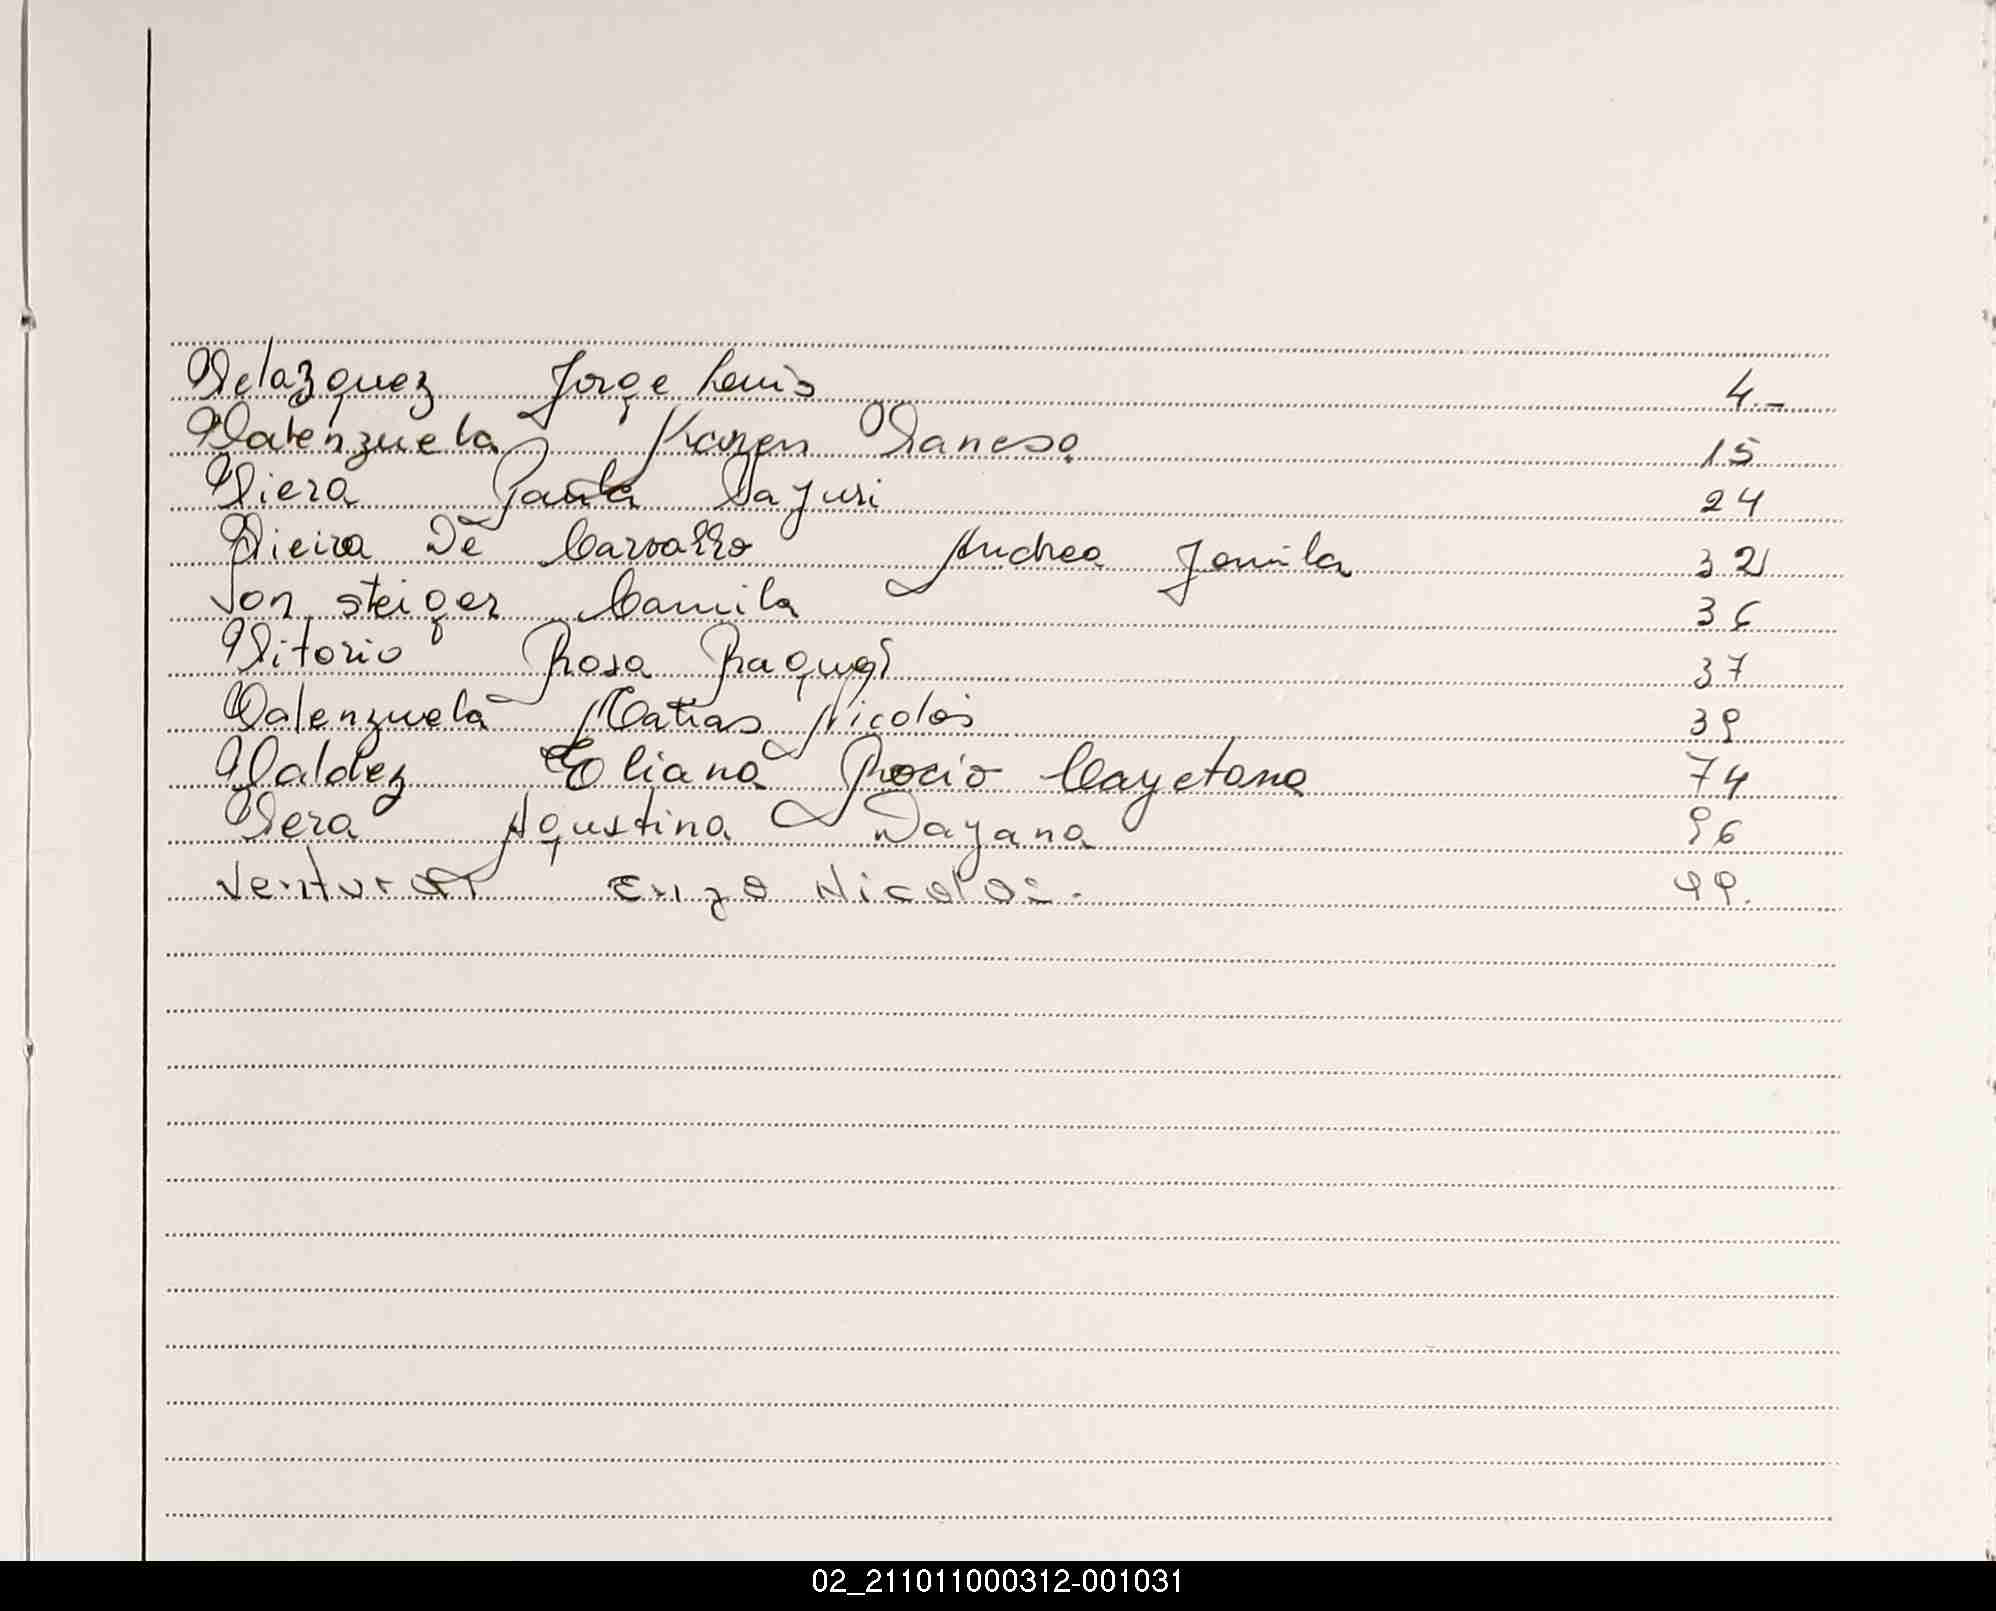 Velazquez Jorge Luis 4.-
Valenzuela Karen Vanesa 15
Viera Paula Sayuri 24
Vieira De Carvalho Andrea Jamila 32
Von steiger Camila 36
Vitorio Rosa Raquel 37
Valenzuela Matias Nicolás 39
Valdez Eliana Rocio Cayetana 74
Vera Agustina Dayana 96
Ventura Enzo Nicolas. 99.
02_211011000312-001031